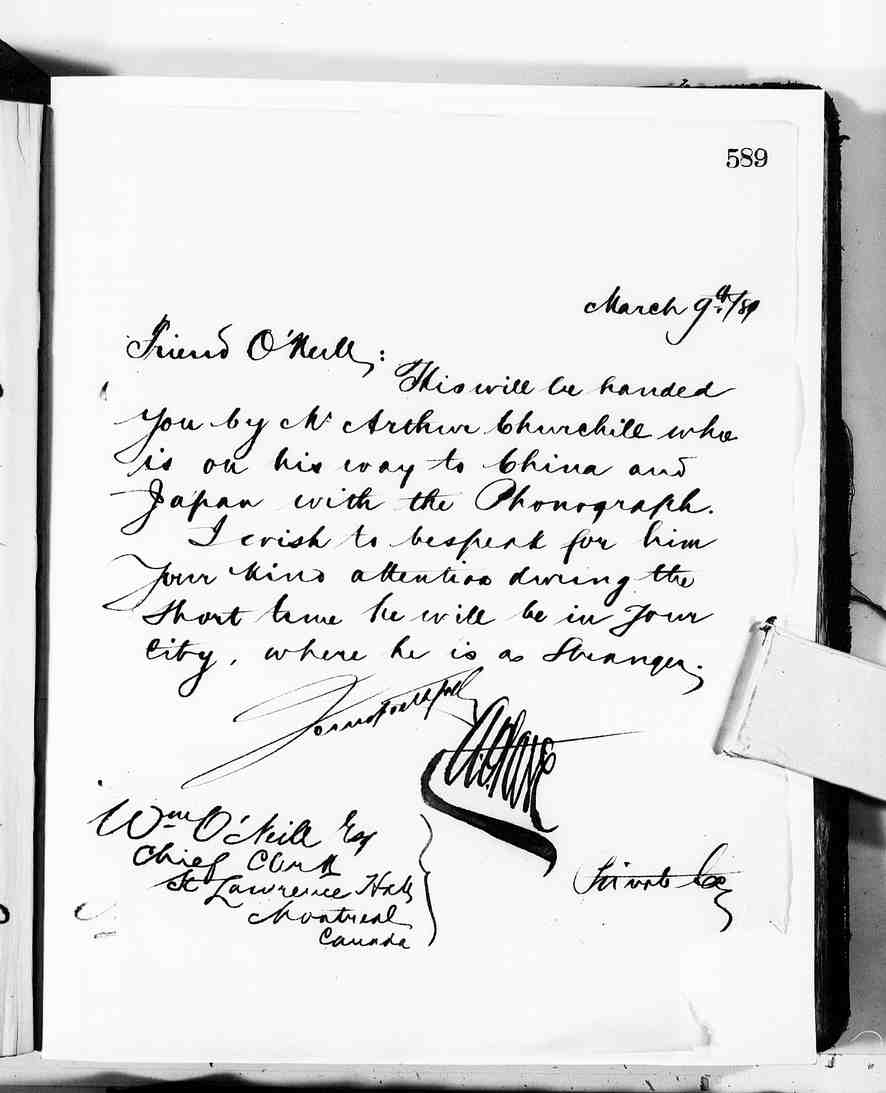 589
March 9th/89
Friend O'Neill;
This will be handed
you by Mr Arthur Churchill who
is on his way to China and
Japan with the Phonograph.
I wish to bespeak for him
Your kind attention during the
Short time he will be in Your
City, where he is a Stranger.
Yours faithfully
Wm O'Neill Esq
Chief Clerk
St Lawrence Hall
Montreal
Canada
Private